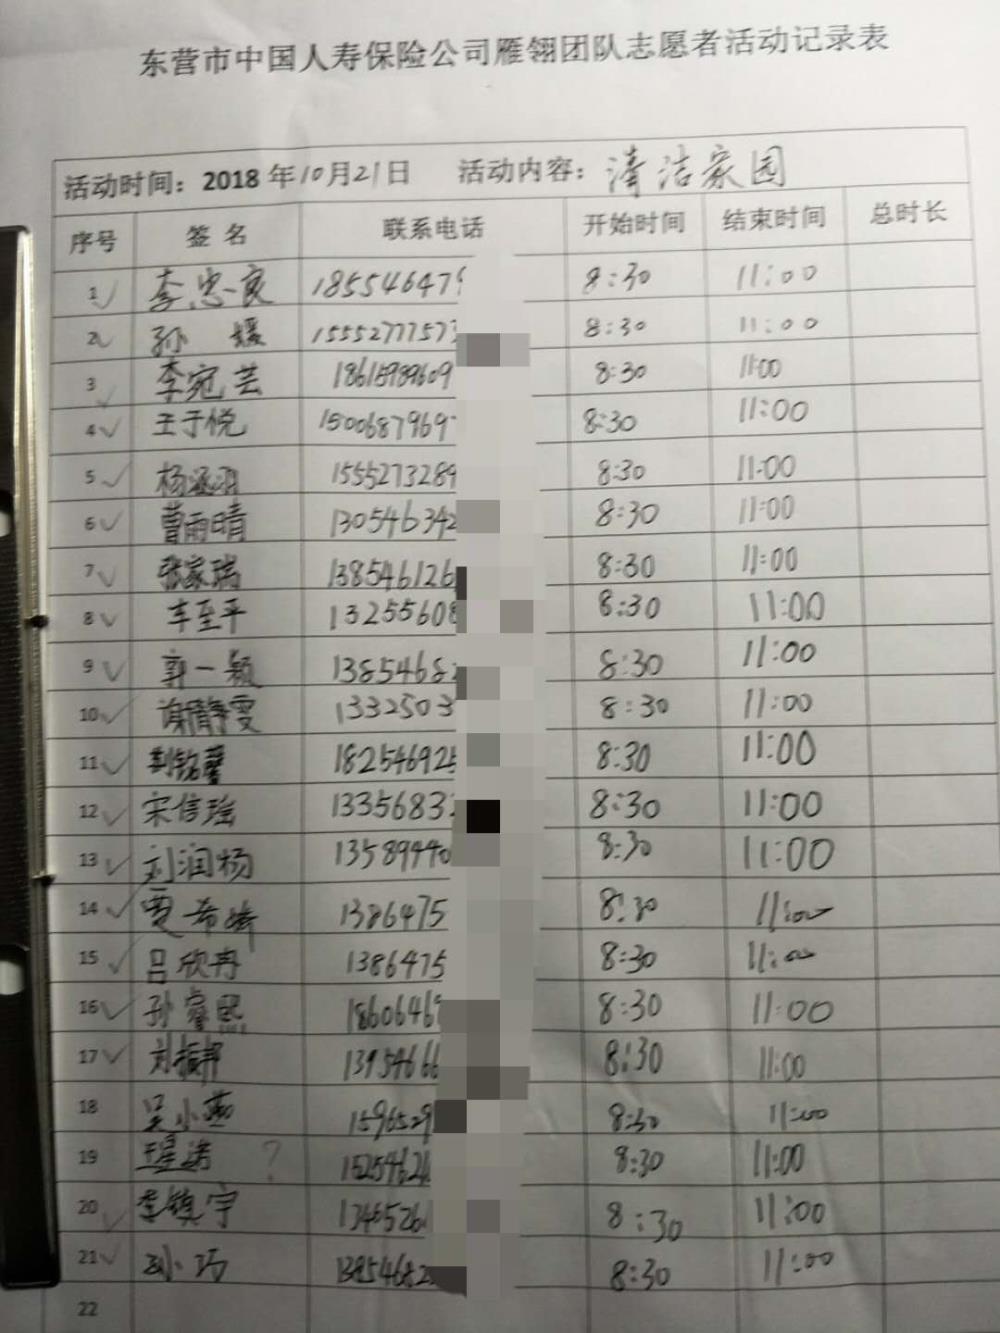 东营市中国人寿保险公司雁翎团队志愿者活动记录表
活动时间：2018年10月21日 活动内容：清洁家园
序号 签名 联系电话 开始时间 结束时间 总时长
1 李忠良 185546479 8:30 11:00
2 孙媛 1555277757 8:30 11:00
3 李宛芸 18615989609 8:30 11:00
4 王于悦 1500687969 8:30 11:00
5 杨涵羽 1555273289 8:30 11:00
6 曹雨晴 130546342 8:30 11:00
7 张家瑞 138546126 8:30 11:00
8 车至平 13255608 8:30 11:00
9 郭一颖 13854682 8:30 11:00
10 谢静雯 1332503 8:30 11:00
11 荆铭馨 182546925 8:30 11:00
12 宋信瑶 13356832 8:30 11:00
13 刘润杨 13589440 8:30 11:00
14 贾希婧 1386475 8:30 11:00
15 吕欣冉 1386475 8:30 11:00
16 孙睿熙 18606469 8:30 11:00
17 刘振邦 13954666 8:30 11:00
18 吴小燕 15965291 8:30 11:00
19 ? 15254626 8:30 11:00
20 李镇宇 13465261 8:30 11:00
21 孙巧 13854682 8:30 11:00
22